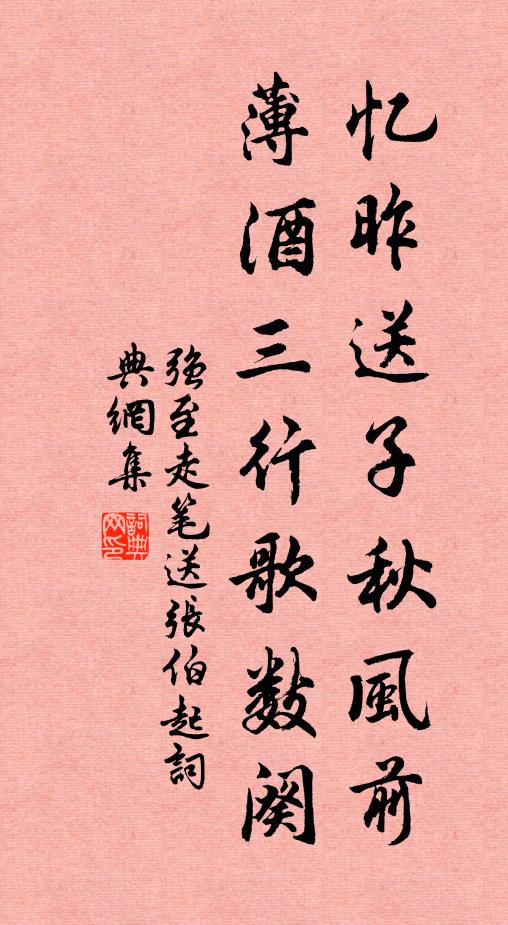 忆昨送子秋風前
薄酒三行歌数阕
强至走笔送張伯起詞
典網集
詞典網印